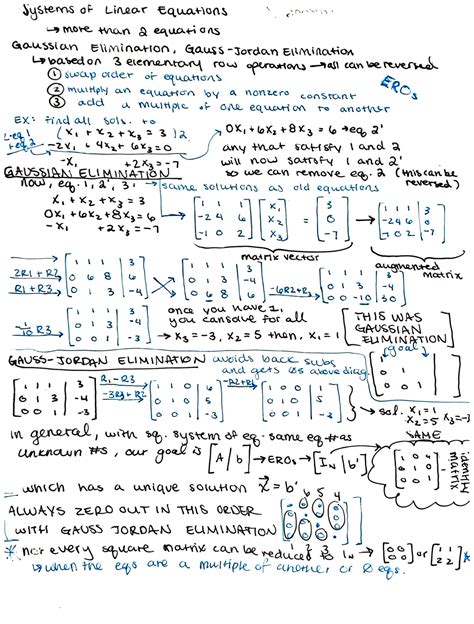 Systems of Linear Equations
↳ more than 2 equations
Gaussian Elimination, Gauss-Jordan Elimination
↳ based on 3 elementary row operations → all can be reversed
① swap order of equations
② multiply an equation by a nonzero constant
③ add a multiple of one equation to another
EROs
EX: find all sols. to
x₁ + x₂ + x₃ = 3
-2x₁ + 4x₂ + 6x₃ = 0
-x₁ + 2x₃ = -7
0x₁ + 6x₂ + 8x₃ = 6 → eq 2'
any that satisfy 1 and 2
will now satisfy 1 and 2'
so we can remove eq. 2 (this can be reversed)
GAUSSIAN ELIMINATION
now, eq. 1, 2', 3: → same solutions as old equations
x₁ + x₂ + x₃ = 3
0x₁ + 6x₂ + 8x₃ = 6
-x₁ + 2x₃ = -7
[1 1 1; -2 4 6; -1 0 2] [x₁; x₂; x₃] = [3; 0; -7] → [1 1 1 | 3; -2 4 6 | 0; -1 0 2 | -7]
matrix vector
augmented matrix
2R1+R2
R1+R3
[1 1 1 | 3; 0 6 8 | 6; 0 1 3 | -4] [1 1 1 | 3; 0 1 3 | -4; 0 6 8 | 6] -6R2+R3 [1 1 1 | 3; 0 1 3 | -4; 0 0 -10 | 30]
-1/10 R3 [1 1 1 | 3; 0 1 3 | -4; 0 0 1 | -3]
once you have 1,
you can solve for all
→ x₃ = -3, x₂ = 5 then, x₁ = 1
THIS WAS GAUSSIAN ELIMINATION
goal
GAUSS-JORDAN ELIMINATION avoids back subs
and gets 0s above diag.
[1 1 1 | 3; 0 1 3 | -4; 0 0 1 | -3] R1-R3 -3R3+R2 [1 1 0 | 6; 0 1 0 | 5; 0 0 1 | -3] -R2+R1 [1 0 0 | 1; 0 1 0 | 5; 0 0 1 | -3] → sol. x₁=1 x₂=5 x₃=-3
in general, with sq. system of eq. same eq #as
unknown #s, our goal is [A|b] → EROs → [Iₙ|b']
SAME
identity matrix
which has a unique solution x⃗ = b'
ALWAYS ZERO OUT IN THIS ORDER
WITH GAUSS JORDAN ELIMINATION
6 5 4
1 2 3
* not every square matrix can be reduced to Iₙ → [0 0; 0 0] or [1 1; 2 2] *
↳ when the eqs are a multiple of another or 0 eqs.